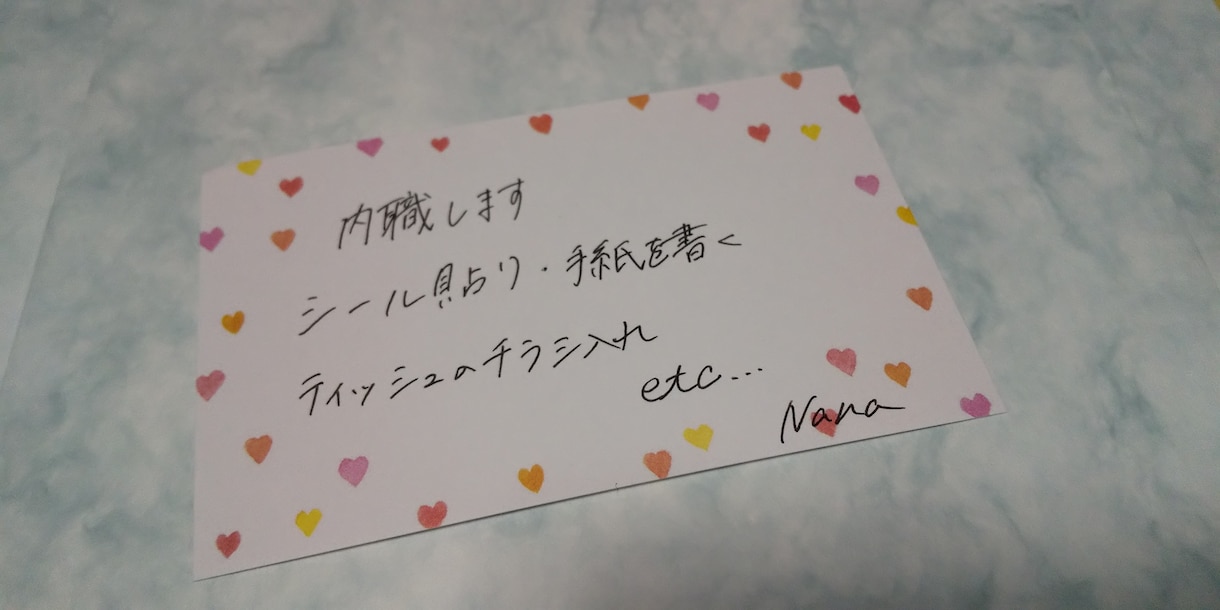 内職します
シール貼り・手紙を書く
ティッシュのチラシ入れ
etc...
Nana